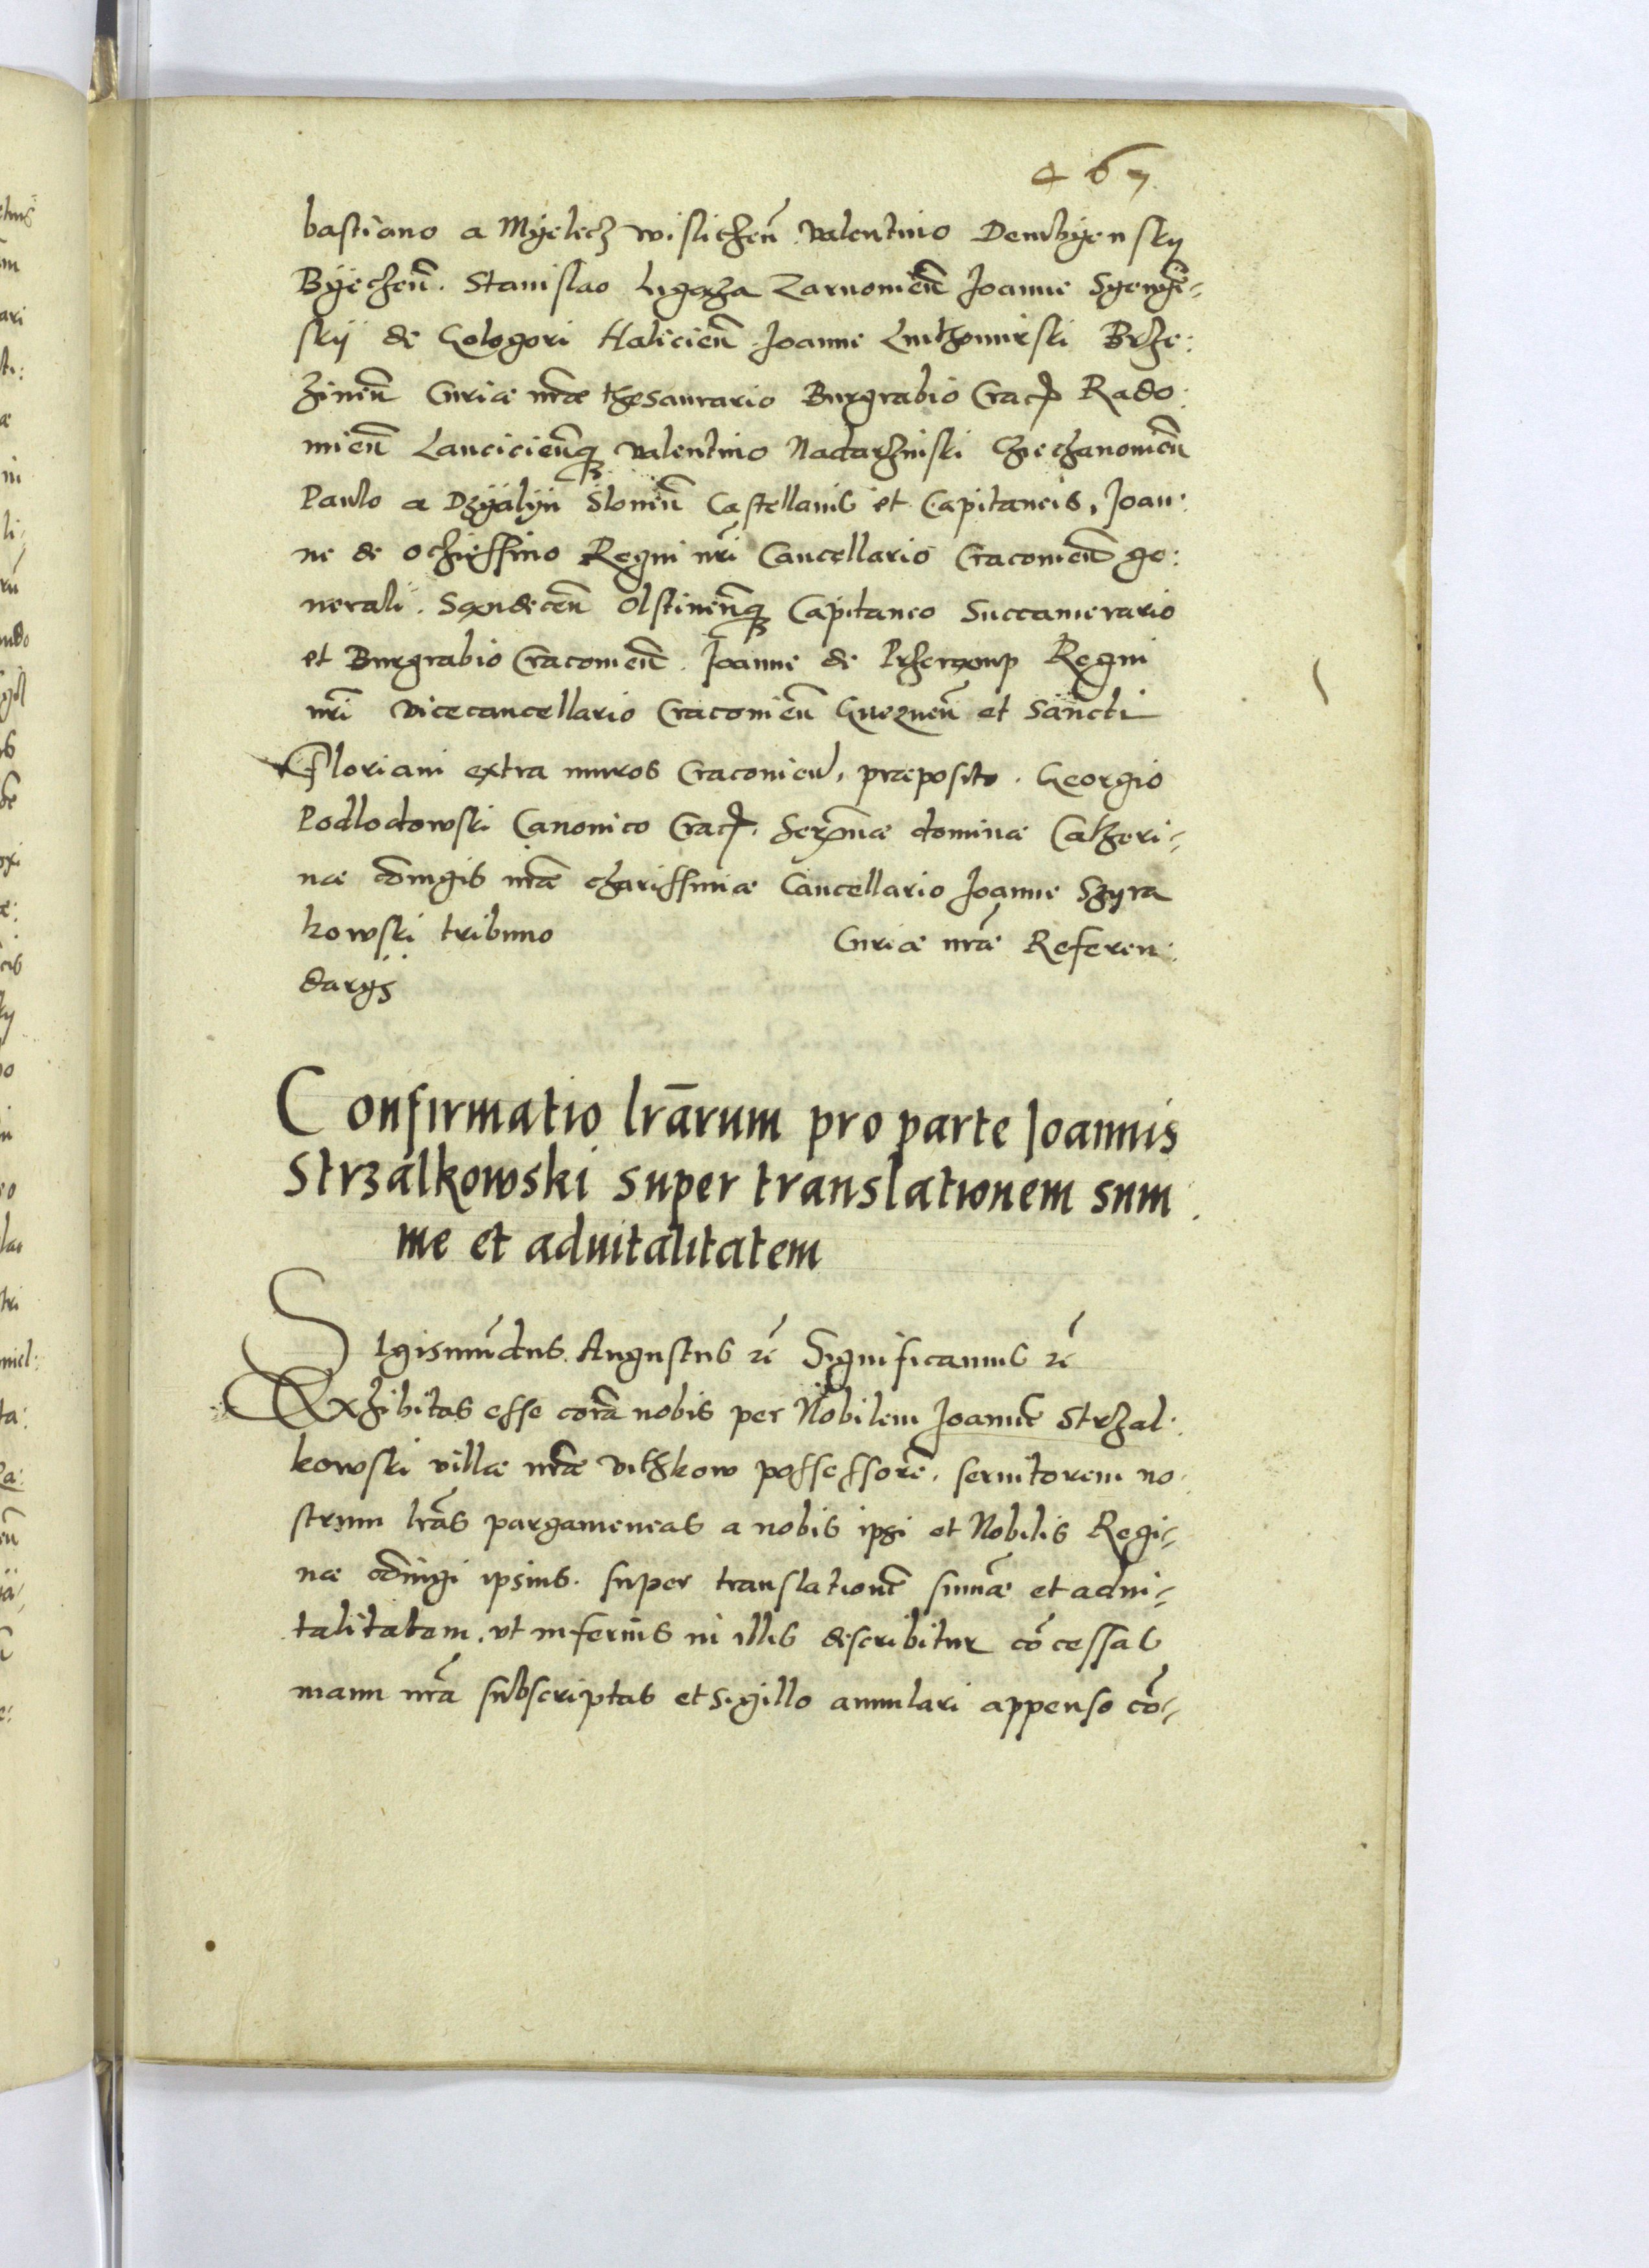 467
bastiano a Myelecz wislichen̄ valentino Dembyensky
Byechen̄. Stanislao Ligęza Zarnowien̄ Joanne Syenyen-
skij de Gologori Halicien̄ Joanne Luthomirski Brze:
zinen̄ Curiæ nr̄æ thesaurario Burgrabio Crac̄ Rado:
mien̄ Lancicien̄q3 valentino Nadarzinski Czechanowien̄
Paulo a Dzyalyn Slonen̄ Castellanis et Capitaneis, Joan:
ne de Ochieſſino Regni nr̄i Cancellario Cracowien̄ ge:
nerali. Sandecen̄ Olstinen̄q3 Capitaneo Succamerario
et Burgrabio Cracowien̄. Joanne de Przerąmp Regni
nr̄i vicecancellario Cracowien̄ Gneznen̄ et Sancti
Floriani extra muros Cracowien̄, præposito. Georgio
Podlodowski Canonico Crac̄. Serm̄æ dominæ Catheri-
næ cōiugis nr̄æ chariſſimæ Cancellario Joanne Szyra
kowski tribuno Curiæ nr̄æ Referen:
darys
Confirmatio lrārum pro parte Joannis
Strzalkowski super translationem sum
me et aduitalitatem
Sigismūdus Augustus rē Significamus rē
Exhibitas esse corā nobis per Nobilem Joannē Strzal:
kowski villæ nr̄æ vithkow poſſeſſorē. seruitorem no
strum lrās pargameneas a nobis ipsi et Nobilis Regi-
næ cōiugi ipsius. super translationē sum̄æ et adui-
talitatem. vt inferius in illis describitur cōcessas
manu nr̄a subscriptas et sigillo annulari appenso cō-